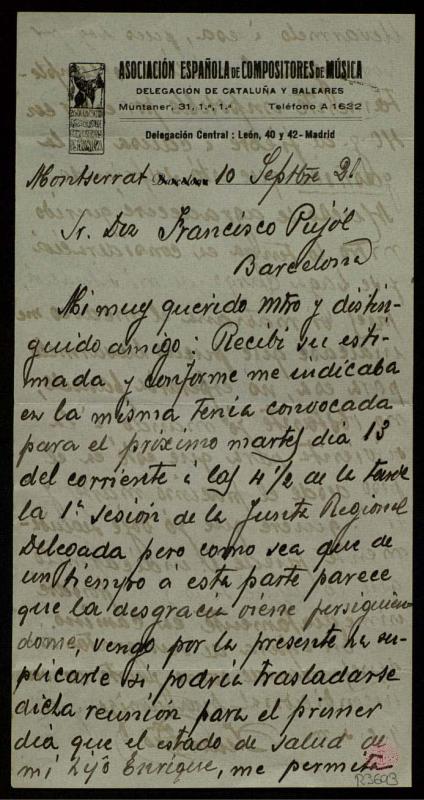 ASOCIACIÓN ESPAÑOLA DE COMPOSITORES DE MÚSICA
DELEGACIÓN DE CATALUÑA Y BALEARES
Muntaner, 31, 1.º, 1.ª Teléfono A 1632
Delegación Central: León, 40 y 42-Madrid
Montserrat Barcelona 10 Septbre 21
Sr. Don Francisco Pujól
Barcelona
Mi muy querido Mtro y distin-
guido amigo: Recibí su esti-
mada y conforme me indicaba
en la misma tenia convocada
para el próximo martes dia 13
del corriente á las 4 1/2 de la tarde
la 1ª sesión de la Junta Regional
Delegada pero como sea que de
un tiempo á esta parte parece
que la desgracia viene persiguien-
dome, vengo por la presente ha su-
plicarle si podría trasladarse
dicha reunión para el primer
dia que el estado de salud de
mi hijo Enrique, me permita
R3693